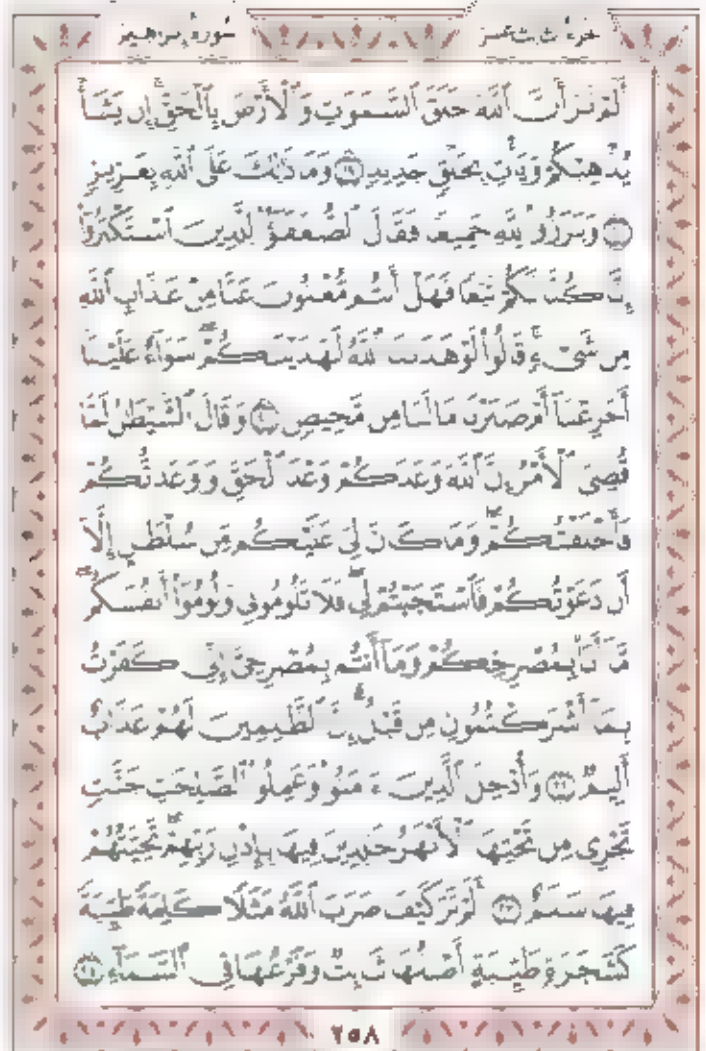 سورة إبراهيم الجزء الثالث عشر
أَلَمْ تَرَ أَنَّ ٱللَّهَ خَلَقَ ٱلسَّمَٰوَٰتِ وَٱلْأَرْضَ بِٱلْحَقِّ ۚ إِن يَشَأْ
يُذْهِبْكُمْ وَيَأْتِ بِخَلْقٍ جَدِيدٍ ١٩ وَمَا ذَٰلِكَ عَلَى ٱللَّهِ بِعَزِيزٍ
٢٠ وَبَرَزُوا۟ لِلَّهِ جَمِيعًا فَقَالَ ٱلضُّعَفَٰٓؤُا۟ لِلَّذِينَ ٱسْتَكْبَرُوٓا۟
إِنَّا كُنَّا لَكُمْ تَبَعًا فَهَلْ أَنتُم مُّغْنُونَ عَنَّا مِنْ عَذَابِ ٱللَّهِ
مِن شَىْءٍ ۚ قَالُوا۟ لَوْ هَدَىٰنَا ٱللَّهُ لَهَدَيْنَٰكُمْ ۖ سَوَآءٌ عَلَيْنَآ
أَجَزِعْنَآ أَمْ صَبَرْنَا مَا لَنَا مِن مَّحِيصٍ ٢١ وَقَالَ ٱلشَّيْطَٰنُ لَمَّا
قُضِىَ ٱلْأَمْرُ إِنَّ ٱللَّهَ وَعَدَكُمْ وَعْدَ ٱلْحَقِّ وَوَعَدتُّكُمْ
فَأَخْلَفْتُكُمْ ۖ وَمَا كَانَ لِىَ عَلَيْكُم مِّن سُلْطَٰنٍ إِلَّآ
أَن دَعَوْتُكُمْ فَٱسْتَجَبْتُمْ لِى ۖ فَلَا تَلُومُونِى وَلُومُوٓا۟ أَنفُسَكُم ۖ
مَّآ أَنَا۠ بِمُصْرِخِكُمْ وَمَآ أَنتُم بِمُصْرِخِىَّ ۖ إِنِّى كَفَرْتُ
بِمَآ أَشْرَكْتُمُونِ مِن قَبْلُ ۗ إِنَّ ٱلظَّٰلِمِينَ لَهُمْ عَذَابٌ
أَلِيمٌ ٢٢ وَأُدْخِلَ ٱلَّذِينَ ءَامَنُوا۟ وَعَمِلُوا۟ ٱلصَّٰلِحَٰتِ جَنَّٰتٍ
تَجْرِى مِن تَحْتِهَا ٱلْأَنْهَٰرُ خَٰلِدِينَ فِيهَا بِإِذْنِ رَبِّهِمْ ۖ تَحِيَّتُهُمْ
فِيهَا سَلَٰمٌ ٢٣ أَلَمْ تَرَ كَيْفَ ضَرَبَ ٱللَّهُ مَثَلًا كَلِمَةً طَيِّبَةً
كَشَجَرَةٍ طَيِّبَةٍ أَصْلُهَا ثَابِتٌ وَفَرْعُهَا فِى ٱلسَّمَآءِ ٢٤
٢٥٨